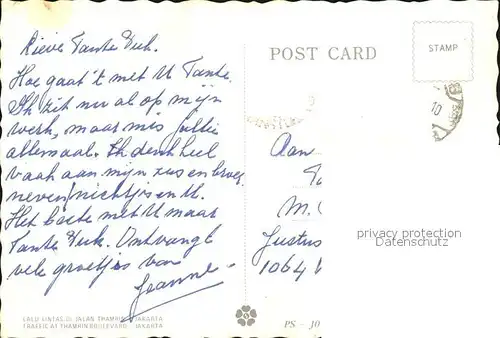 Lieve Tante Dick.
Hoe gaat 't met U Tante.
Ik zit nu al op mijn
werk, maar mis jullie
allemaal. Ik denk heel
vaak aan mijn zus en broer,
neven/nichtjes en U.
Het beste met U maar
Tante Dick. Ontvang
vele groetjes van
Jeanne
LALU LINTAS DI JALAN THAMRIN JAKARTA
TRAFFIC AT THAMRIN BOULEVARD JAKARTA
POST CARD
STAMP
10
Aan
M.
Justus
1064
privacy protection
Datenschutz
PS - JO